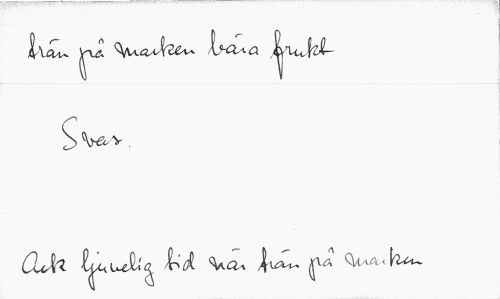 trän på marken bära frukt
Svar.
Ack ljuvelig tid när trän på marken